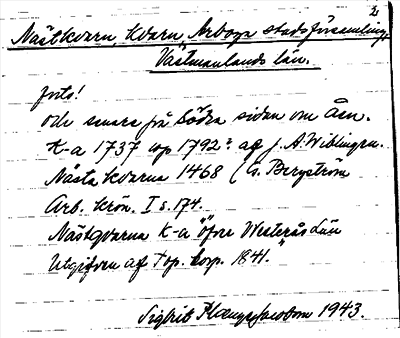 2
Nästkvarn, kvarn, Arboga stadsförsamling,
Västmanlands län.
forts!
och snare på Södra sidan om Åen.
K-a 1737 cop 1792? af J. A. Wiblingen.
Nästa kvarna 1468 (G. Bergström
Arb. krön. I s. 174.
Nästqvarna K-a "öfre Westerås Län
Utgifven af Top. Corp. 1841."
Sigfrid 1943.